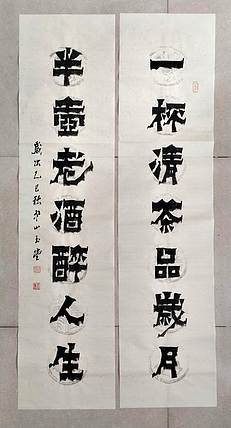 一杯清茶品歲月
半壺老酒醉人生
歲次乙巳秋